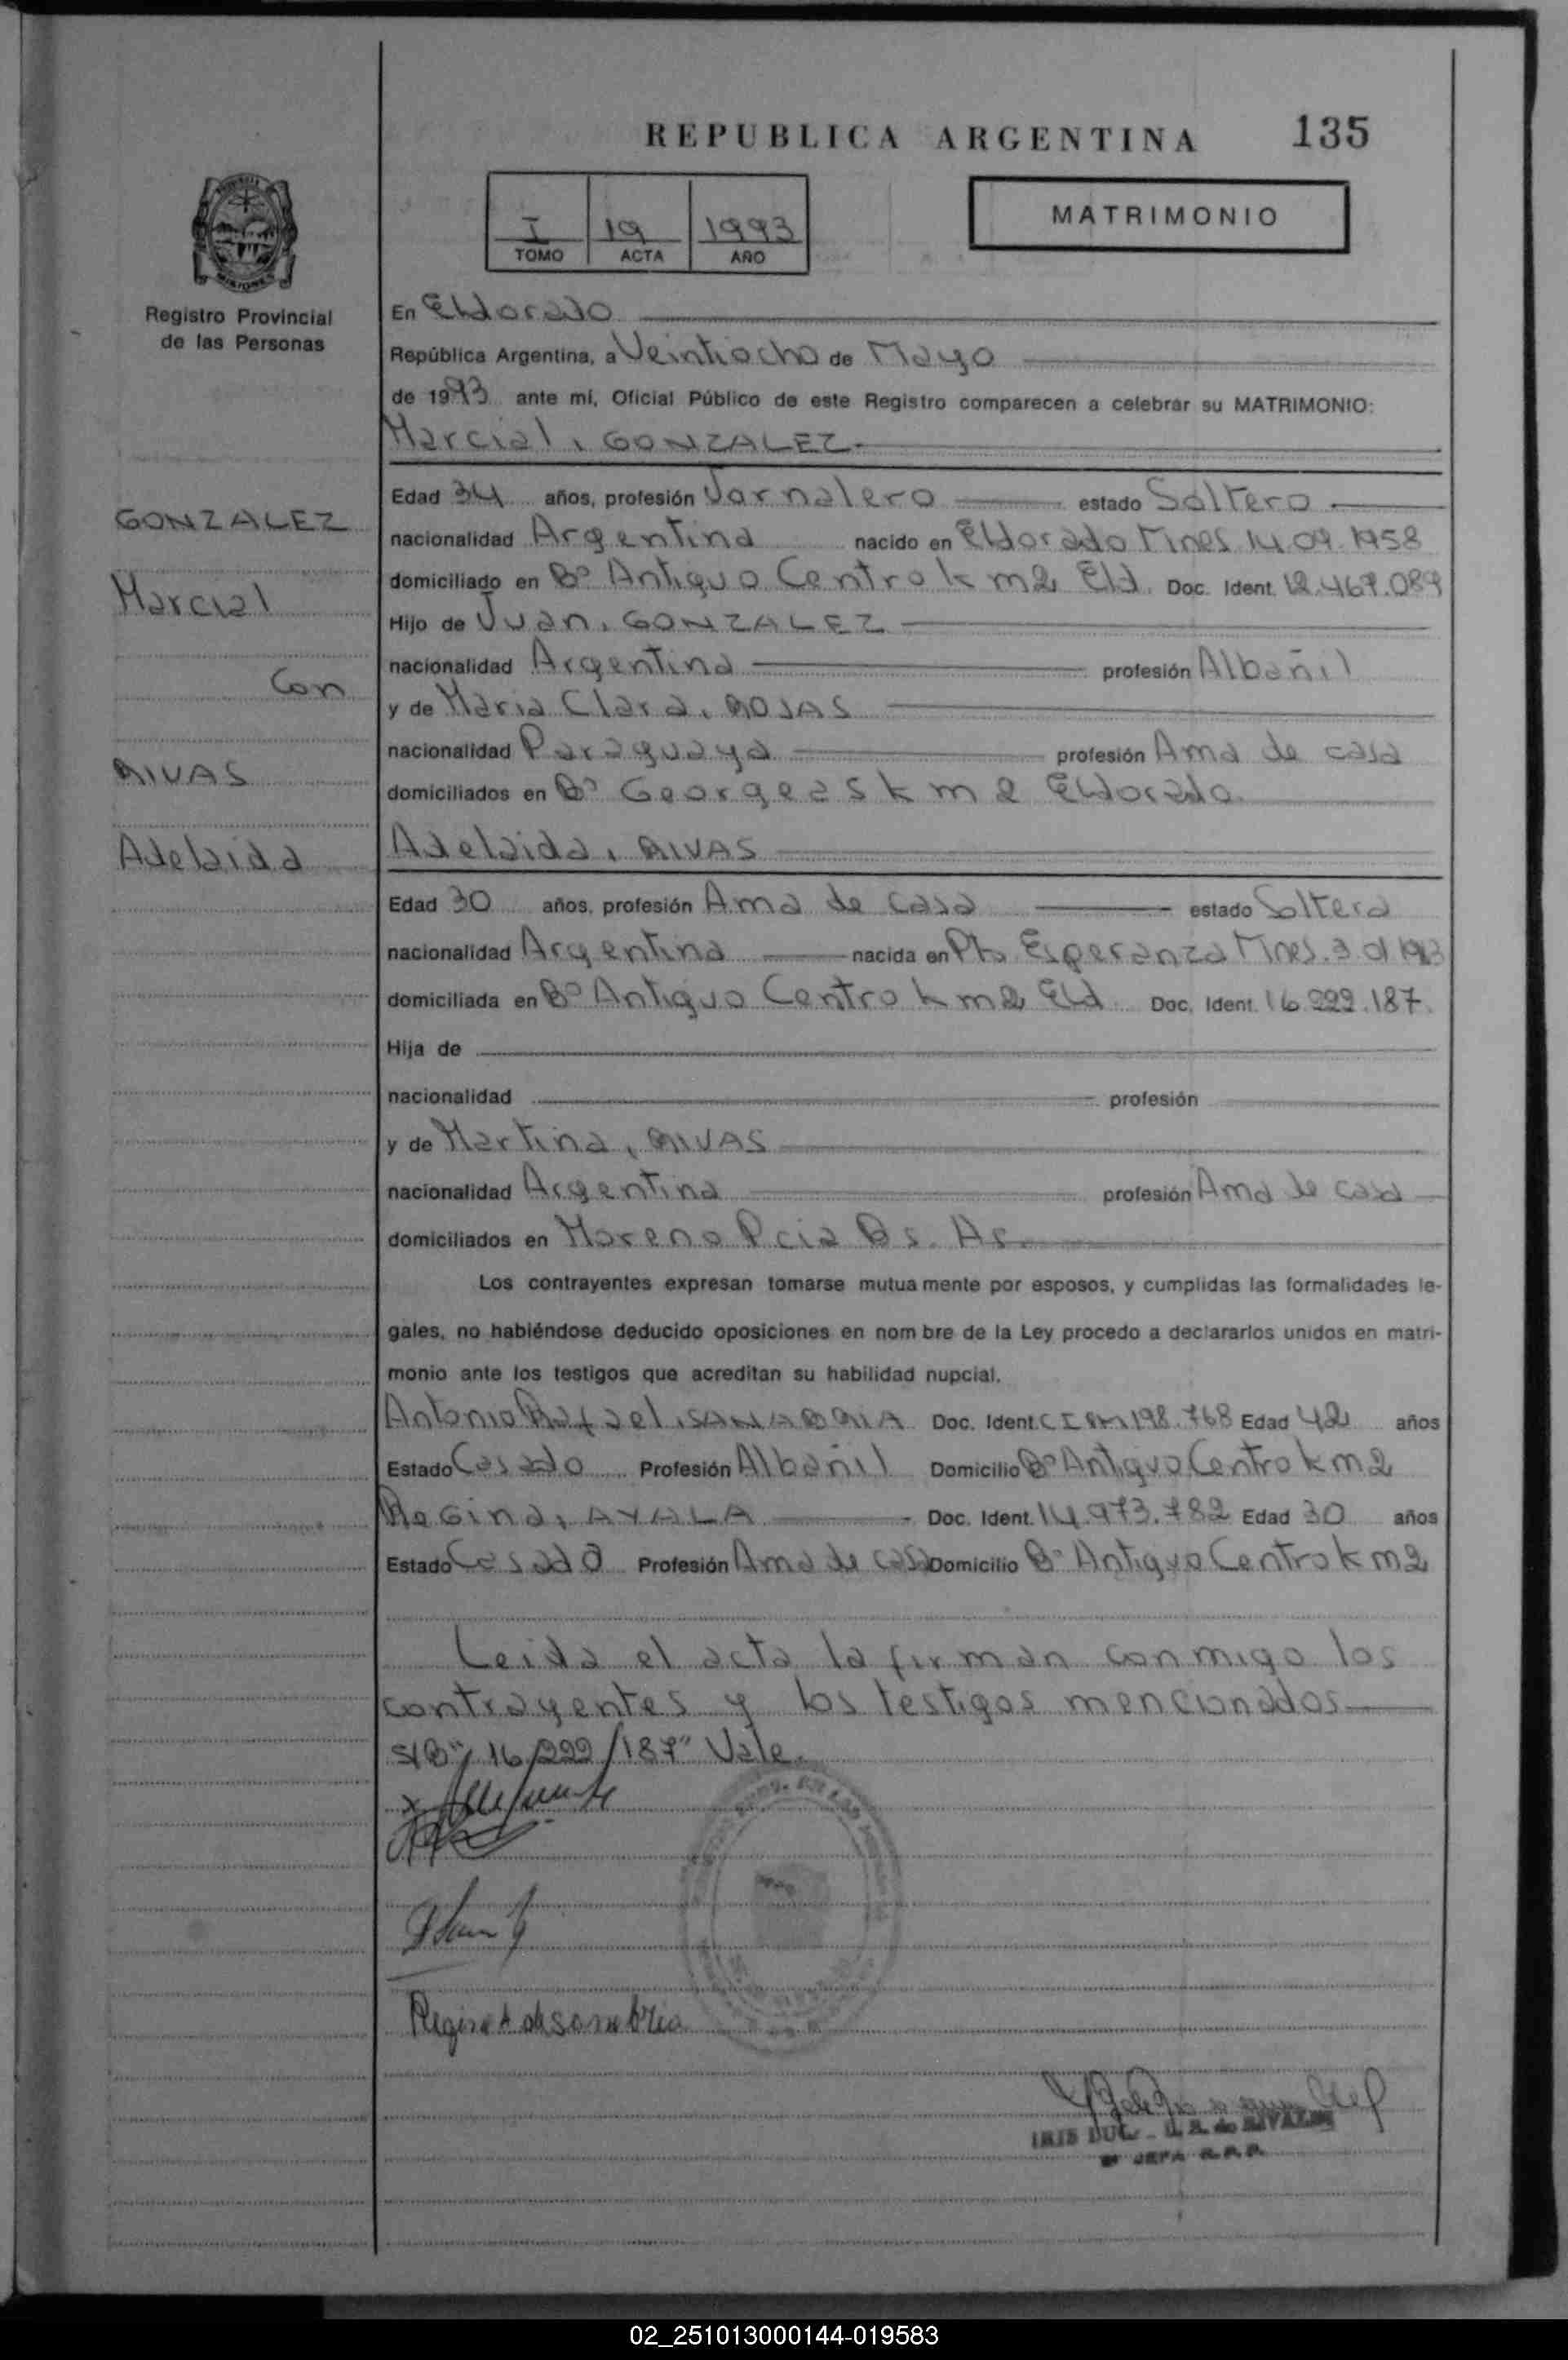 REPUBLICA ARGENTINA 135
I 19 1993
TOMO ACTA AÑO
MATRIMONIO
MISIONES
Registro Provincial
de las Personas
En Eldorado
República Argentina, a Veintiocho de Mayo
de 1993 ante mí, Oficial Público de este Registro comparecen a celebrar su MATRIMONIO:
Marcial, GONZALEZ
GONZALEZ
Marcial
Con
RIVAS
Adelaida
Edad 34 años, profesión Jornalero estado Soltero
nacionalidad Argentina nacido en Eldorado Mnes 14 09 1958
domiciliado en Bº Antiguo Centro km2 Eld. Doc. Ident. 12.467.089
Hijo de Juan, GONZALEZ
nacionalidad Argentina profesión Albañil
y de Maria Clara, ROJAS
nacionalidad Paraguaya profesión Ama de casa
domiciliados en Bº km 2 Eldorado
Adelaida, RIVAS
Edad 30 años, profesión Ama de casa estado Soltera
nacionalidad Argentina nacida en Pto Esperanza Mnes. 3 01
domiciliada en Bº Antiguo Centro km2 Eld Doc. Ident. 16.222.187.
Hija de
nacionalidad profesión
y de Martina, RIVAS
nacionalidad Argentina profesión Ama de casa
domiciliados en Moreno Pcia Bs. As.
Los contrayentes expresan tomarse mutua mente por esposos, y cumplidas las formalidades le-
gales, no habiéndose deducido oposiciones en nom bre de la Ley procedo a declararlos unidos en matri-
monio ante los testigos que acreditan su habilidad nupcial.
Antonio Rafael, SANABRIA Doc. Ident. 198.768 Edad 42 años
Estado Casado Profesión Albañil Domicilio Bº Antiguo Centro km2
Regina, AYALA Doc. Ident. 14.973.782 Edad 30 años
Estado Casada Profesión Ama de casa Domicilio Bº Antiguo Centro km2
Leida el acta la firman conmigo los
contrayentes y los testigos mencionados
S/B" 16/222/187" Vale.
Regina A de Sanabria
2º JEFA R.P.P.
02_251013000144-019583